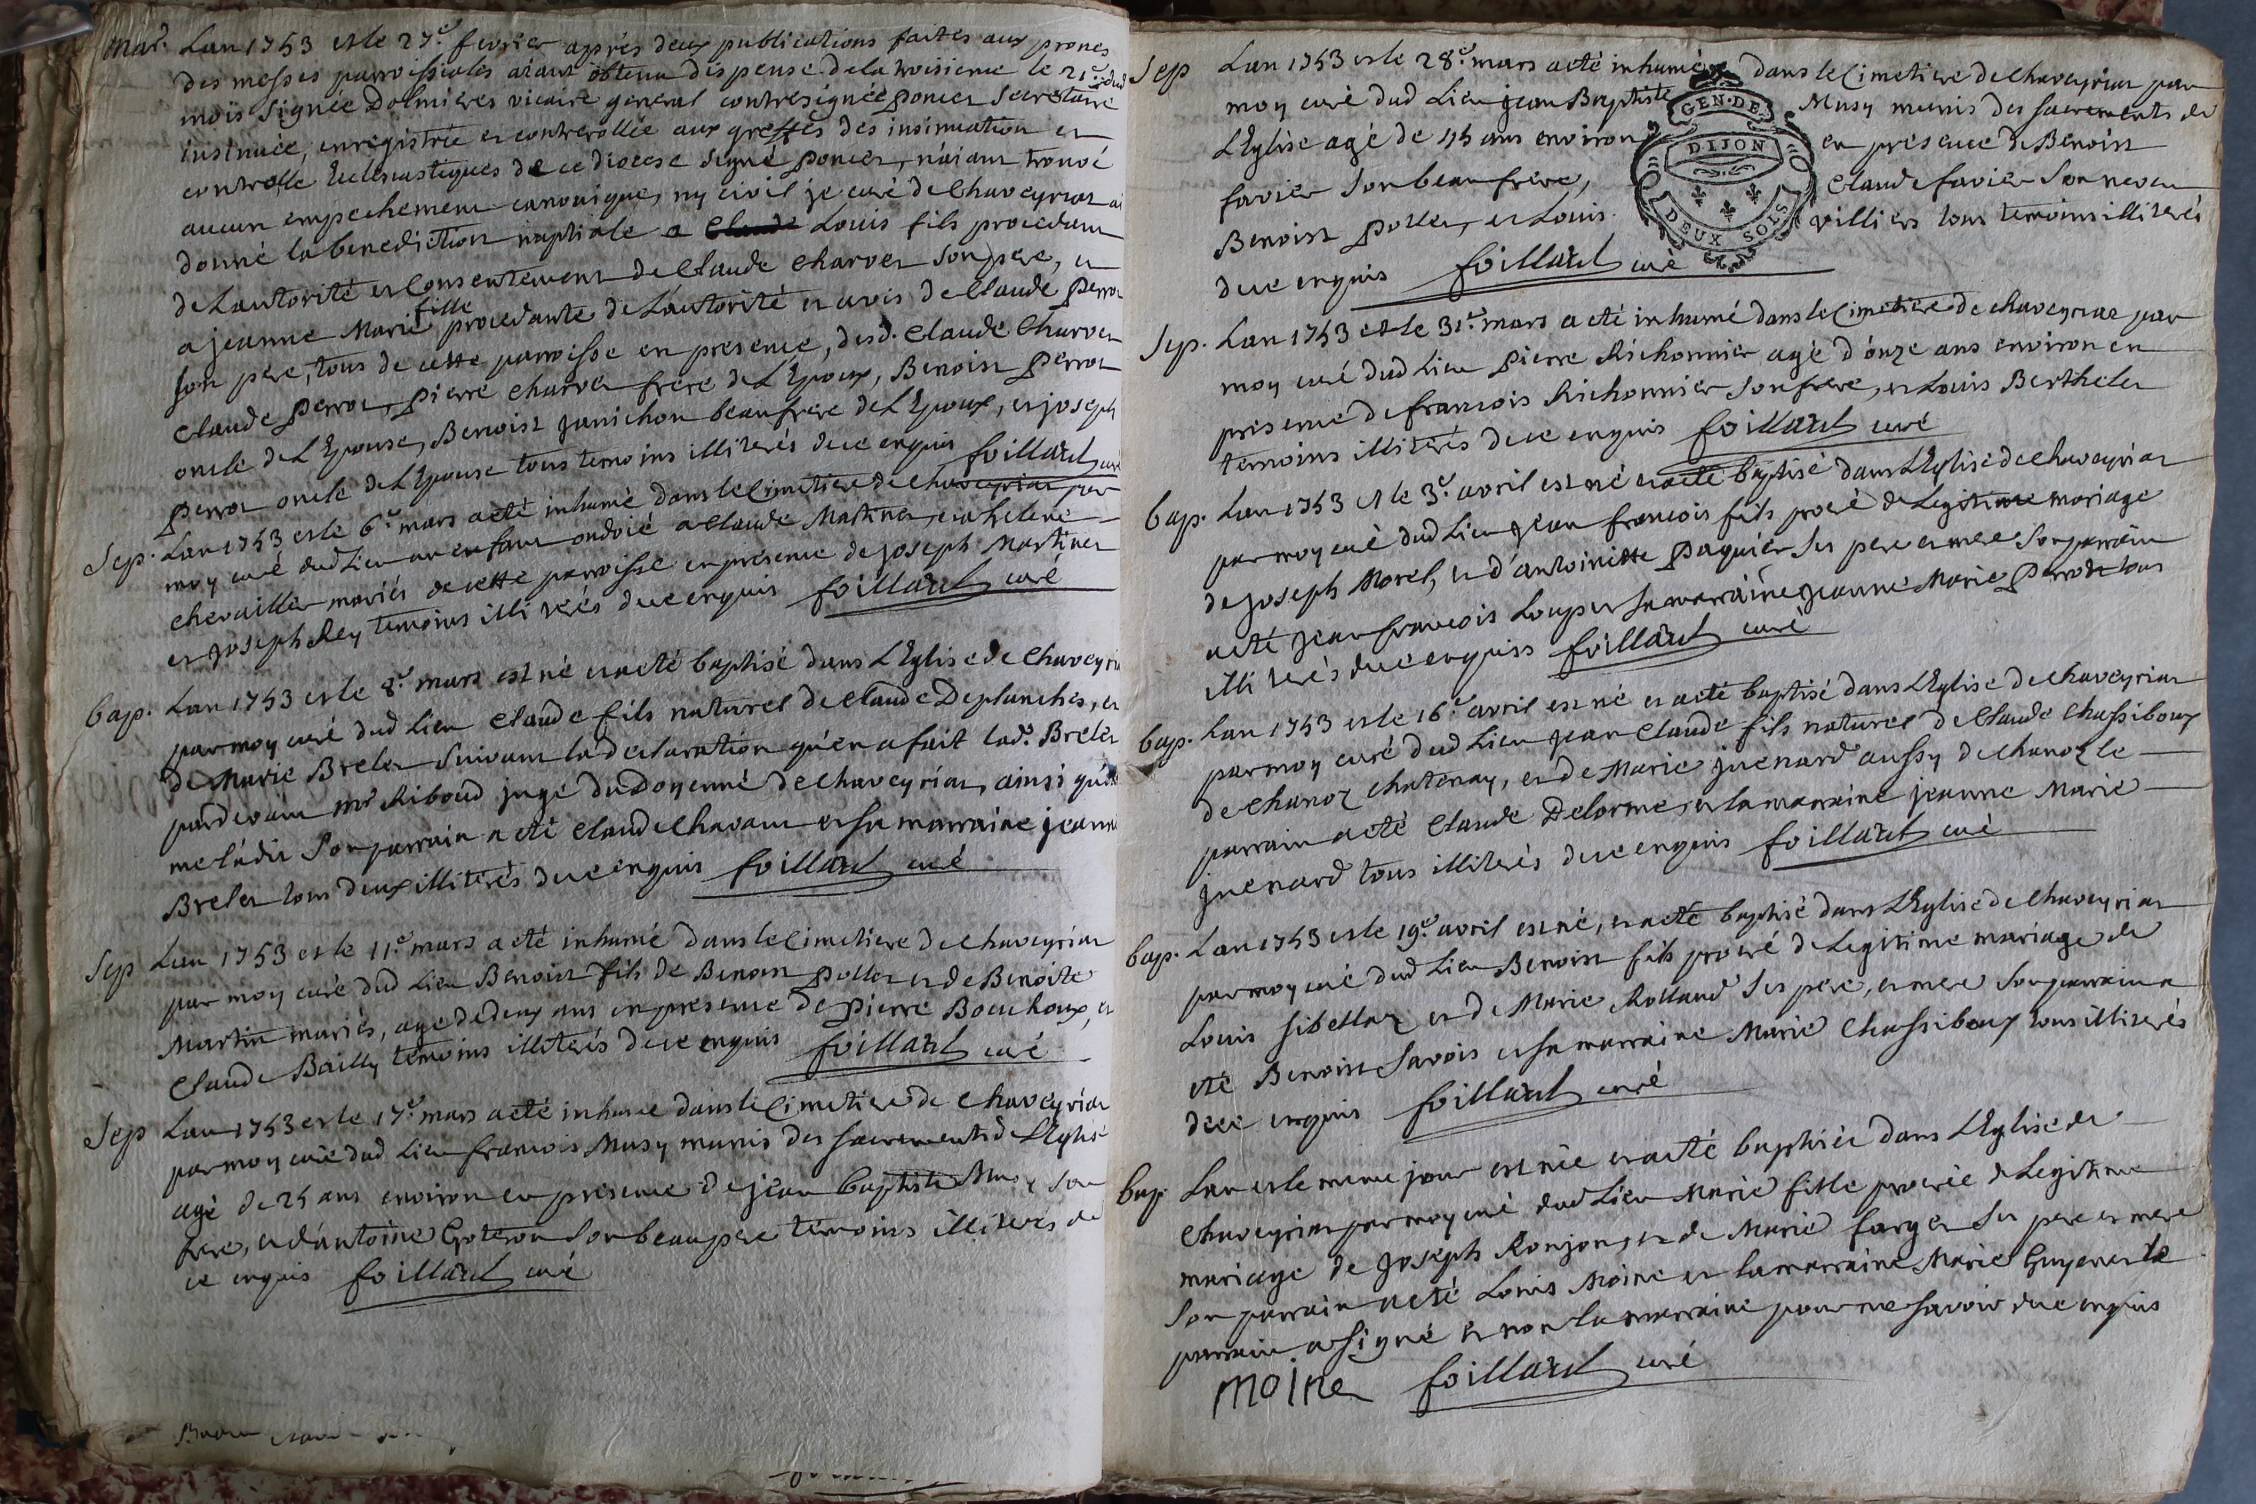 mar. Lan 1753 et le 27.e fevrier aprés deux publications faites aux prones
des messes parroissiales aiant obtenu dispense de la troisieme le 21.e dud
mois signée Dolmieres vicaire general contresignée poncet secretaire
insinuée, enregistrée et controllée aux greffes des insinuation et
controlle Ecclesiastiques de ce diocese signé poncet, n'aiant trouvé
aucun empechement canonique, ny civil je curé de Chaveyriat ai
donné la benediction nuptiale a Louis fils procedant
de L'autorité et Consentement de Claude Charvet son pere, et
a jeanne Marie fille procedante de L'autorité et avis de Claude perrot
son pere, tous de cette parroisse en presence, desd. Claude Charvet
Claude perrot, pierre Charvet frere de L'Epoux, Benoist perrot
oncle de L'Epouse, Benoist janichon beaufrere de L'Epoux, et joseph
perrot oncle de L'Epouse tous temoins illiterés de ce enquis foillard curé
Sep. Lan 1753 et le 6.e mars a eté inhumé dans le Cimetiere de Chaveyriat par
moy curé dud Lieu un enfant ondoié a Claude Martinet, et a helene
chevaillier mariés de cette parroisse en presence de joseph Martinet
et joseph Rey temoins illiterés de ce enquis foillard curé
bap. Lan 1753 et le 8.e mars est né et a eté baptisé dans L'Eglise de Chaveyriat
par moy curé dud Lieu Claude fils naturel de Claude Deplanches, et
de Marie Brelet suivant la declaration qu'en a fait lad. Brelet
pardevant mr Riboud juge du Doyenné de Chaveyriat, ainsi qu'elle
me l'a dit son parrain a eté Claude Chavant et sa marraine jeanne
Brelet tous deux illiterés de ce enquis foillard curé
Sep Lan 1753 et le 11.e mars a eté inhumé dans le Cimetiere de Chaveyriat
par moy curé dud Lieu Benoist fils de Benoist pollet et de Benoite
Martin mariés, agé de deux ans en presence de pierre Bouchoux, et
Claude Bailly temoins illiterés de ce enquis foillard curé
Sep Lan 1753 et le 17.e mars a eté inhumé dans le Cimetiere de Chaveyriat
par moy curé dud Lieu francois Musy munis des sacrements de L'Eglise
agé de 25 ans environ en presence de jean baptiste Musy son
frere, et d'antoine Goteron son beaupere temoins illiterés de
ce enquis foillard curé
Sep Lan 1753 et le 28.e mars a eté inhumé dans le Cimetiere de Chaveyriat par
moy curé dud Lieu jean Baptiste Musy munis des sacrements de
L'Eglise agé de 45 ans environ en presence de Benoist
favier son beaufrere, Claude favier son neveu
Benoist pollet, et Louis villiers tous temoins illiterés
de ce enquis foillard curé
GEN. DE
DIJON
DEUX SOLS
Sep. Lan 1753 et le 31.e mars a eté inhumé dans le Cimetiere de Chaveyriat par
moy curé dud Lieu pierre Richonnier agé d'onze ans environ en
presence de francois Richonnier son frere, et Louis Berthelet
temoins illiterés de ce enquis foillard curé
bap. Lan 1753 et le 3.e avril est né et a eté baptisé dans L'Eglise de Chaveyriat
par moy curé dud Lieu jean francois fils procréé de Legitime mariage
de joseph Morel, et d'antoinette paquier ses pere et mere son parrain
a eté jean francois Loup et sa marraine jeanne Marie perrodet tous
illiterés de ce enquis foillard curé
bap. Lan 1753 et le 16.e avril est né et a eté baptisé dans L'Eglise de Chaveyriat
par moy curé dud Lieu jean Claude fils naturel de Claude Chassiboux
de Chanoz Chatenay, et de Marie juenard aussy de Chanoz le
parrain a eté Claude Delorme, et la marraine jeanne Marie
juenard tous illiterés de ce enquis foillard curé
bap. Lan 1753 et le 19.e avril est né, et a eté baptisé dans L'Eglise de Chaveyriat
par moy curé dud Lieu Benoist fils procréé de Legitime mariage de
Louis sibellaz et de Marie Rolland ses pere, et mere son parrain a
eté Benoist Savois et sa marraine Marie Chassiboux tous illiterés
de ce enquis foillard curé
bap. Lan et le meme jour est née et a eté baptisée dans L'Eglise de
Chaveyriat par moy curé dud Lieu Marie fille procréée de Legitime
mariage de joseph Ronjon, et de Marie farget ses pere et mere
son parrain a eté Louis Moine et la marraine Marie Guyenet le
parrain a signé et non la marraine pour ne savoir de ce enquis
moine foillard curé